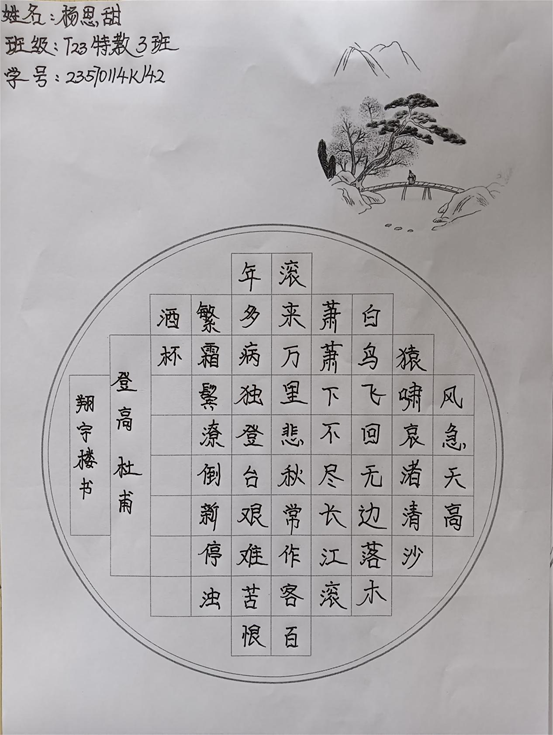 姓名：杨思甜
班级：T23特教3班
学号：23570114K142
风急天高
猿啸哀渚清沙
白鸟飞回无边落木
萧萧下不尽长江滚
滚来万里悲秋常作客百
年多病独登台艰难苦恨
繁霜鬓潦倒新停浊
酒杯
登高 杜甫
翔宇楼书